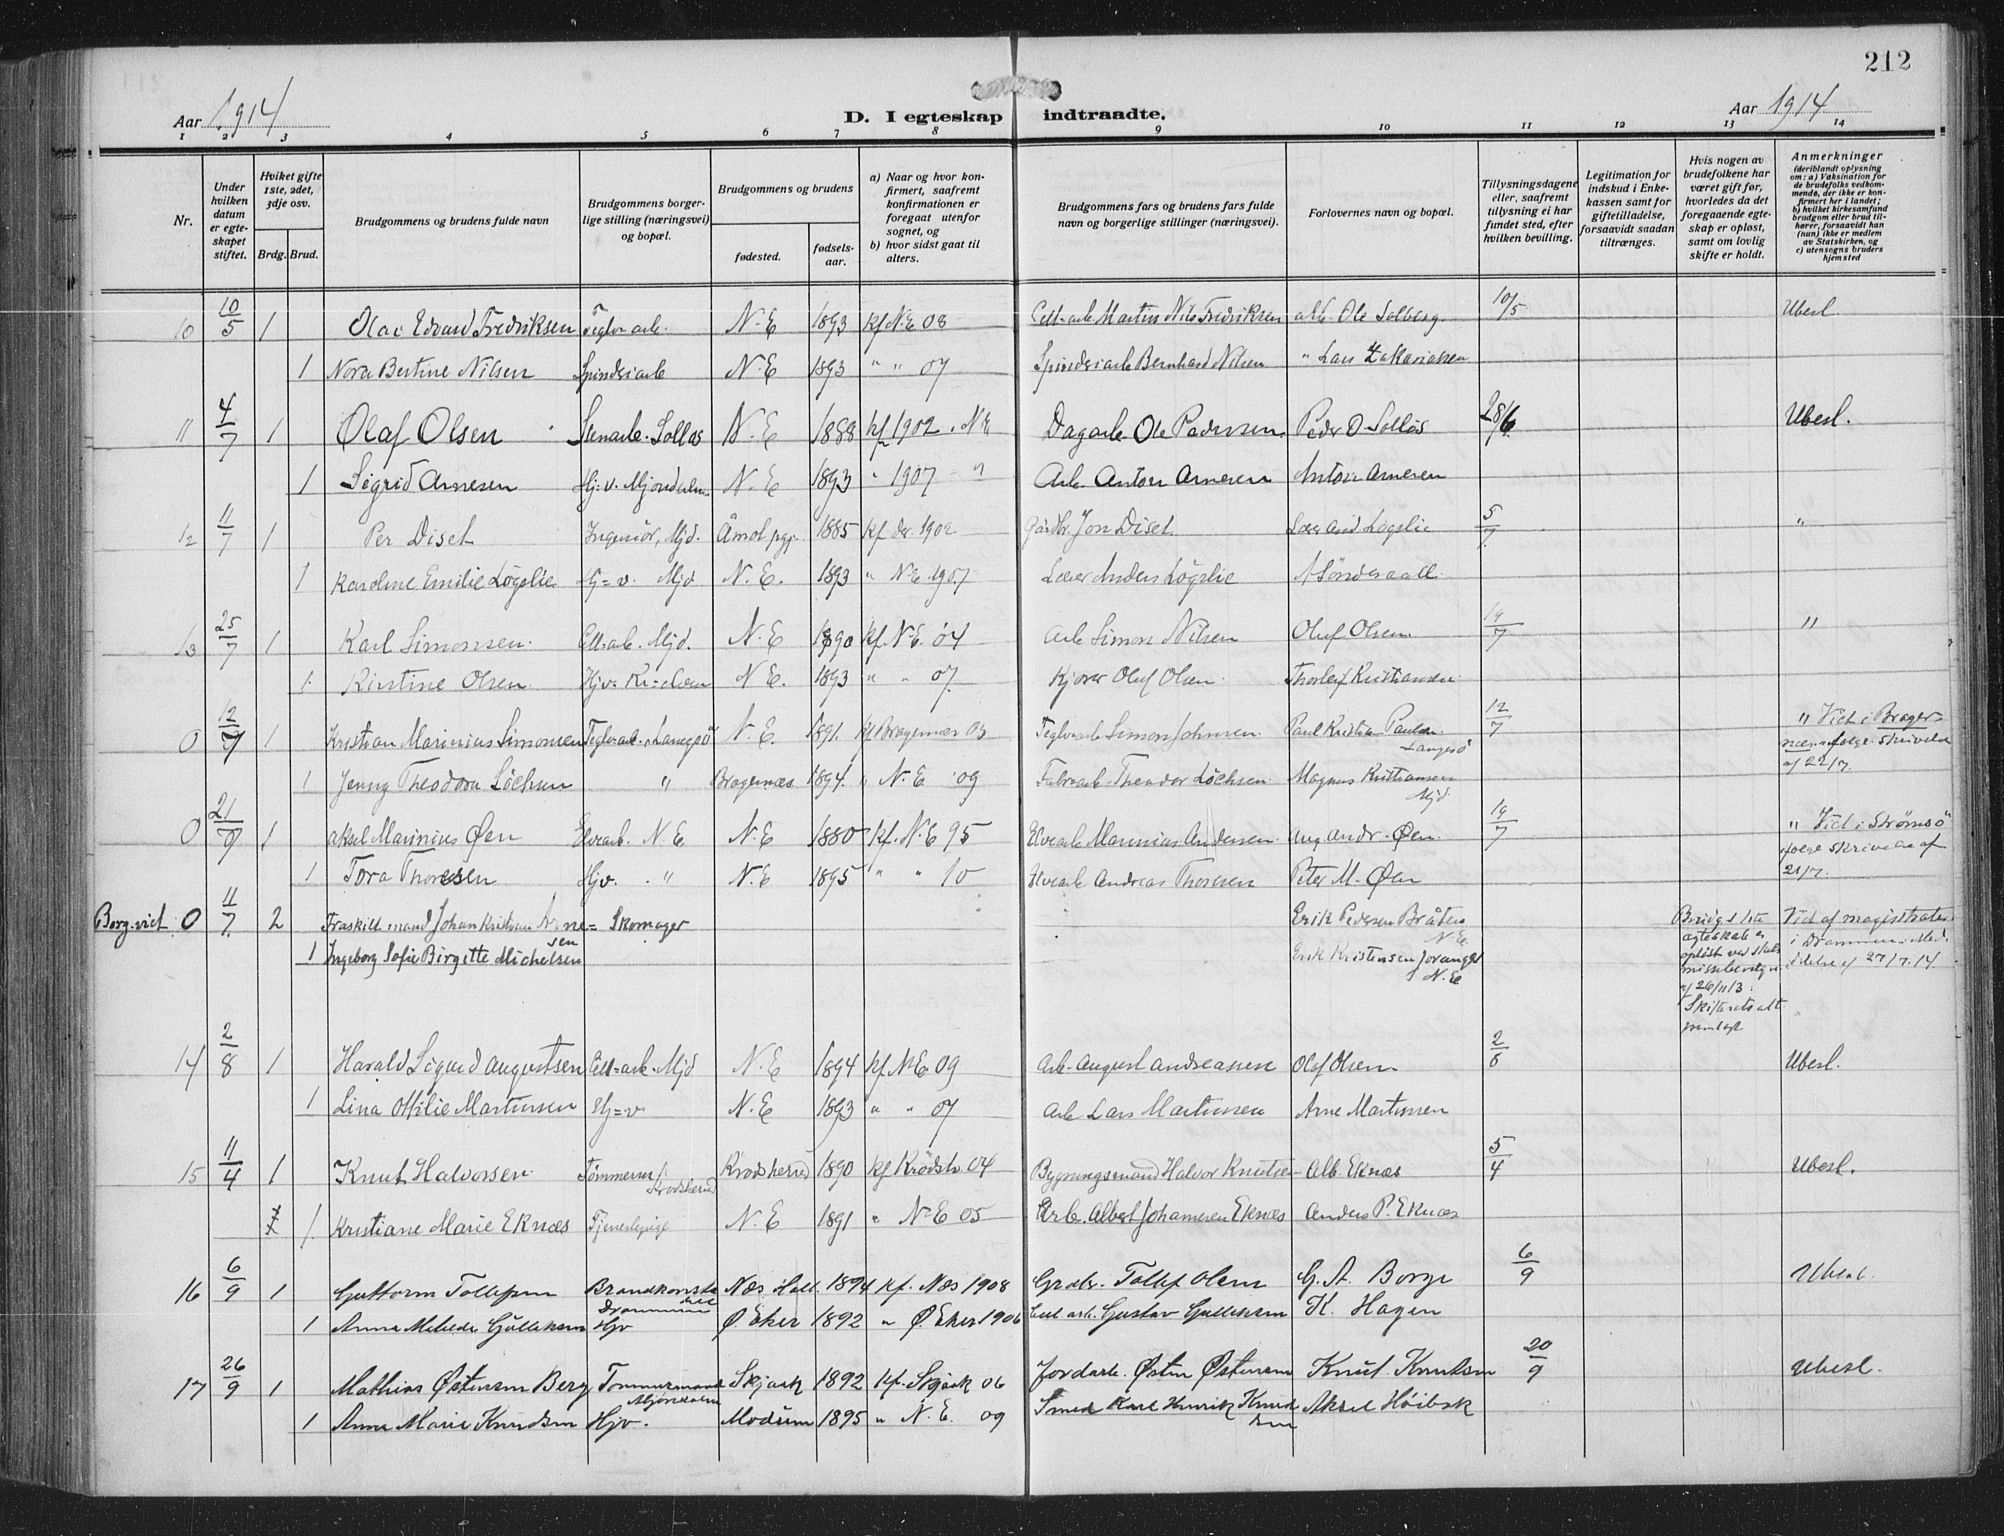 212
Aar 1914 D. I egteskap indtraadte. Aar 1914
1 2 3 4 5 6 7 8 9 10 11 12 13 14
Nr.
Under hvilken datum er egteskapet stiftet.
Hviket gifte 1ste, 2det, 3dje osv.
Brdg. Brud.
Brudgommens og brudens fulde navn
Brudgommens og brudens borgerlige stilling (næringsvei) og bopæl.
Brudgommens og brudens
fødested.
fødselsaar.
a) Naar og hvor konfirmert, saafremt konfirmationen er foregaat utenfor sognet, og
b) hvor sidst gaat til alters.
Brudgommens fars og brudens fars fulde navn og borgerlige stillinger (næringsvei).
Forlovernes navn og bopæl.
Tillysningsdagene eller, saafremt tillysning ei har fundet sted, efter hvilken bevilling.
Legitimation for indskud i Enkekassen samt for giftetilladelse, forsaavidt saadan tiltrænges.
Hvis nogen av brudefolkene har været gift før, hvorledes da det foregaaende egteskap er opløst, samt om lovlig skifte er holdt.
Anmerkninger
(deriblandt oplysning om: a) Vaksination for de brudefolks vedkommende, der ikke er konfirmert her i landet; b) hvilket kirkesamfund brudgom eller brud tilhører, forsaavidt han (hun) ikke er medlem av Statskirken, og c) utensogns bruders hjemsted
10 10/5 1 Olav Edvard Fredriksen Teglv arb. N.E 1893 kf N.E 08 Cell=arb Martin Nils Fredriksen arb. Ole Solberg. 10/5 Ubesl.
1 Nora Bertine Nilsen Spinderiarb N.E 1893 " " 07 Spinderiarb Bernhard Nilsen " Lars Zakariassen
11 4/7 1 Olaf Olsen Stenarb. Solløs N.E 1888 kf 1902. N.E Dagarb. Ole Pedersen Peder O. Solløs 28/6 Ubesl.
1 Sigrid Arnesen Hj=v. Mjøndalen N.E 1893 " 1907 " Arb. Anton Arnesen Anton Arnesen
12 11/7 1 Per Diset Ingeniør, Mjd. Åmot pgj. 1885 kf der 1902 Gårdbr. Jon Diset Lærer And Løgslie 5/7 "
1 Karoline Emilie Løgslie Hj=v. Mjd N.E. 1893 " N.E. 1907 Lærer Anders Løgslie A Sönderaall
13 25/7 1 Karl Simonsen Cell=arb. Mjd. N.E 1890 kf. N.E. 04 Arb Simon Nilsen Oluf Olsen 19/7 "
1 Kirstine Olsen Hjv= Kr=elven N.E. 1893 " " 07. Kjører Oluf Olsen Thorleif Kristiansen
0 12/7 1 Kristian Marinius Simonsen Teglv.arb. Langesø N.E. 1891. kf Bragernæs 05 Teglv.arb Simon Johnsen Paul Kristian Paulsen Langesö 12/7 " Viet i Bragernæs ifølge skrivelse af 22/7.
1 Jenny Theodora Löchsen " Bragernæs 1894. " N.E 09 Fabr.arb Theodor Löchsen Magnus Kristiansen Mjd
0 21/7 1 Aksel Marinius Øen Elvearb. N.E N.E 1880 kf. N.E 95 Elvearb Marinius Andersen Ung andr. Øen 19/7 " Viet i Strømsö ifølge skrivelse af 21/7.
1 Tora Thoresen Hjv. " N.E 1895 " " 10 Elvearb Andreas Thoresen Peter M. Øen
Borg.viet 0 11/7 2 Fraskilt mand Johan Kristian Arnesen= Skomager Erik Pedersen Bråten N.E. Brudg. 1ste ægteskab er opløst ved skilsmissebevilgn. af 26/11 13. Skifteretsatt. fremlagt Viet af magistraten i Drammen. Meddelelse af 27/7.14.
1 Ingeborg Sofie Birgitte Michelsen Erik Kristensen Joranger N.E
14 2/8 1 Harald Sigurd Augustsen Cell=arb. Mjd N.E 1894 kf N.E 09 Arb. August Andreassen Olaf Olsen 2/8 Ubesl.
1 Lina Ottilie Martinsen Hj=v N.E 1893 " " 07 Arb Lars Martinsen Arne Martinsen
15 11/4 1 Knut Halvorsen Tømmerm. Krødsherred Krødsherred 1890 kf Krødsh. 04 Bygningsmand Halvor Knutsen Alb. Eknæs 5/4 Ubesl.
1 Kristiane Marie Eknæs Tjenestepige N.E 1891 " N.E 05 Arb. Albert Johannesen Eknæs Anders P. Eknæs
16 6/9 1 Guttorm Tollefsen Brandkonstabel Drammen Næs Hall. 1894 kf. Næs 1908 Grdbr. Tollef Olsen G. A. Borge 6/9 Ubesl.
1 Anna Mathilde Gulliksen Hjv Ø. Eker 1892 " Ø. Eker 1906 Cell arb. Gustav Gulliksen K. Hagen
17 26/9 1 Mathias Østensen Berg Tømmermand Mjøndalen Skjaak 1892 kf. Skjaak 06 Jordarb. Østen Østensen Knut Knutsen 20/9 Ubesl.
1 Anna Marie Knudsen Hjv. Modum 1895 " N.E. 09 Smed Karl Henrik Knudsen Aksel Höibak